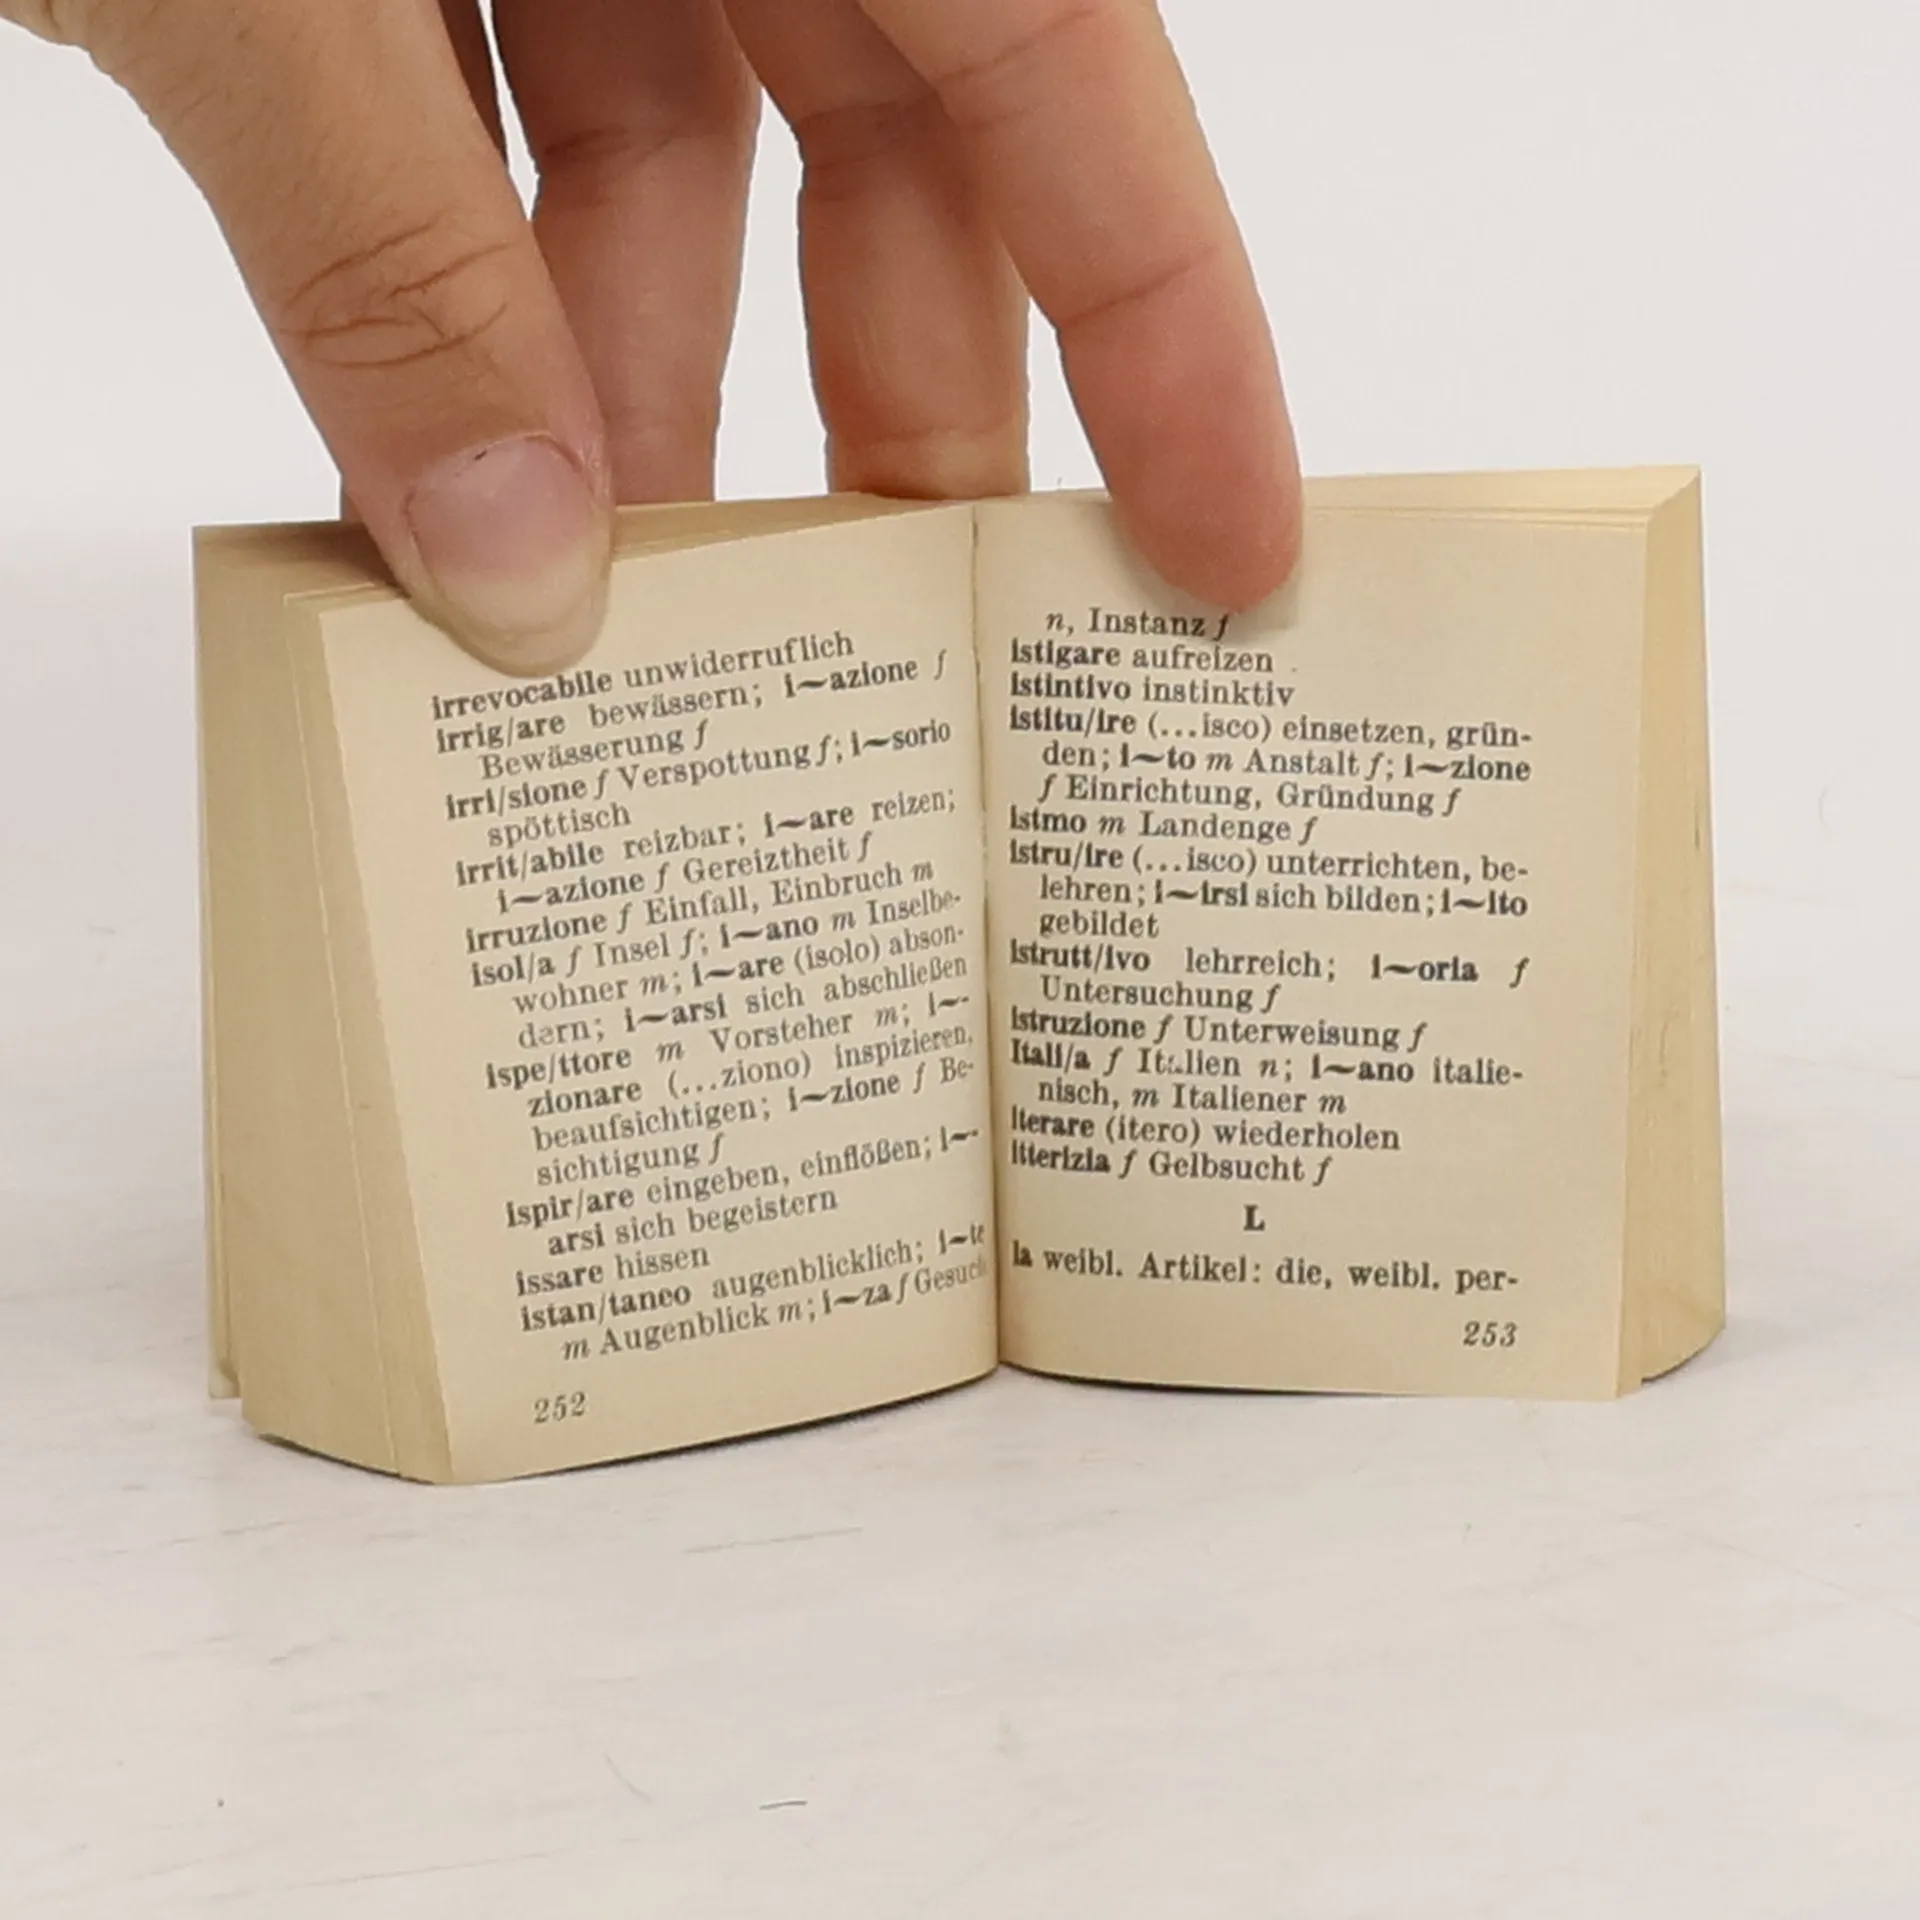 irrevocabile unwiderruflich
irrig/are bewässern; i~azione f
Bewässerung f
irri/sione f Verspottung f; i~sorio
spöttisch
irrit/abile reizbar; i~are reizen;
i~azione f Gereiztheit f
irruzione f Einfall, Einbruch m
isol/a f Insel f; i~ano m Inselbe-
wohner m; i~are (isolo) abson-
dern; i~arsi sich abschließen
ispe/ttore m Vorsteher m; i~-
zionare (...ziono) inspizieren,
beaufsichtigen; i~zione f Be-
sichtigung f
ispir/are eingeben, einflößen; i~-
arsi sich begeistern
issare hissen
istan/taneo augenblicklich; i~te
m Augenblick m; i~za f Gesuch
252
n, Instanz f
istigare aufreizen
istintivo instinktiv
istitu/ire (...isco) einsetzen, grün-
den; i~to m Anstalt f; i~zione
f Einrichtung, Gründung f
istmo m Landenge f
istru/ire (...isco) unterrichten, be-
lehren; i~irsi sich bilden; i~ito
gebildet
istrutt/ivo lehrreich; i~oria f
Untersuchung f
istruzione f Unterweisung f
Itali/a f Italien n; i~ano italie-
nisch, m Italiener m
iterare (itero) wiederholen
itterizia f Gelbsucht f
L
la weibl. Artikel: die, weibl. per-
253